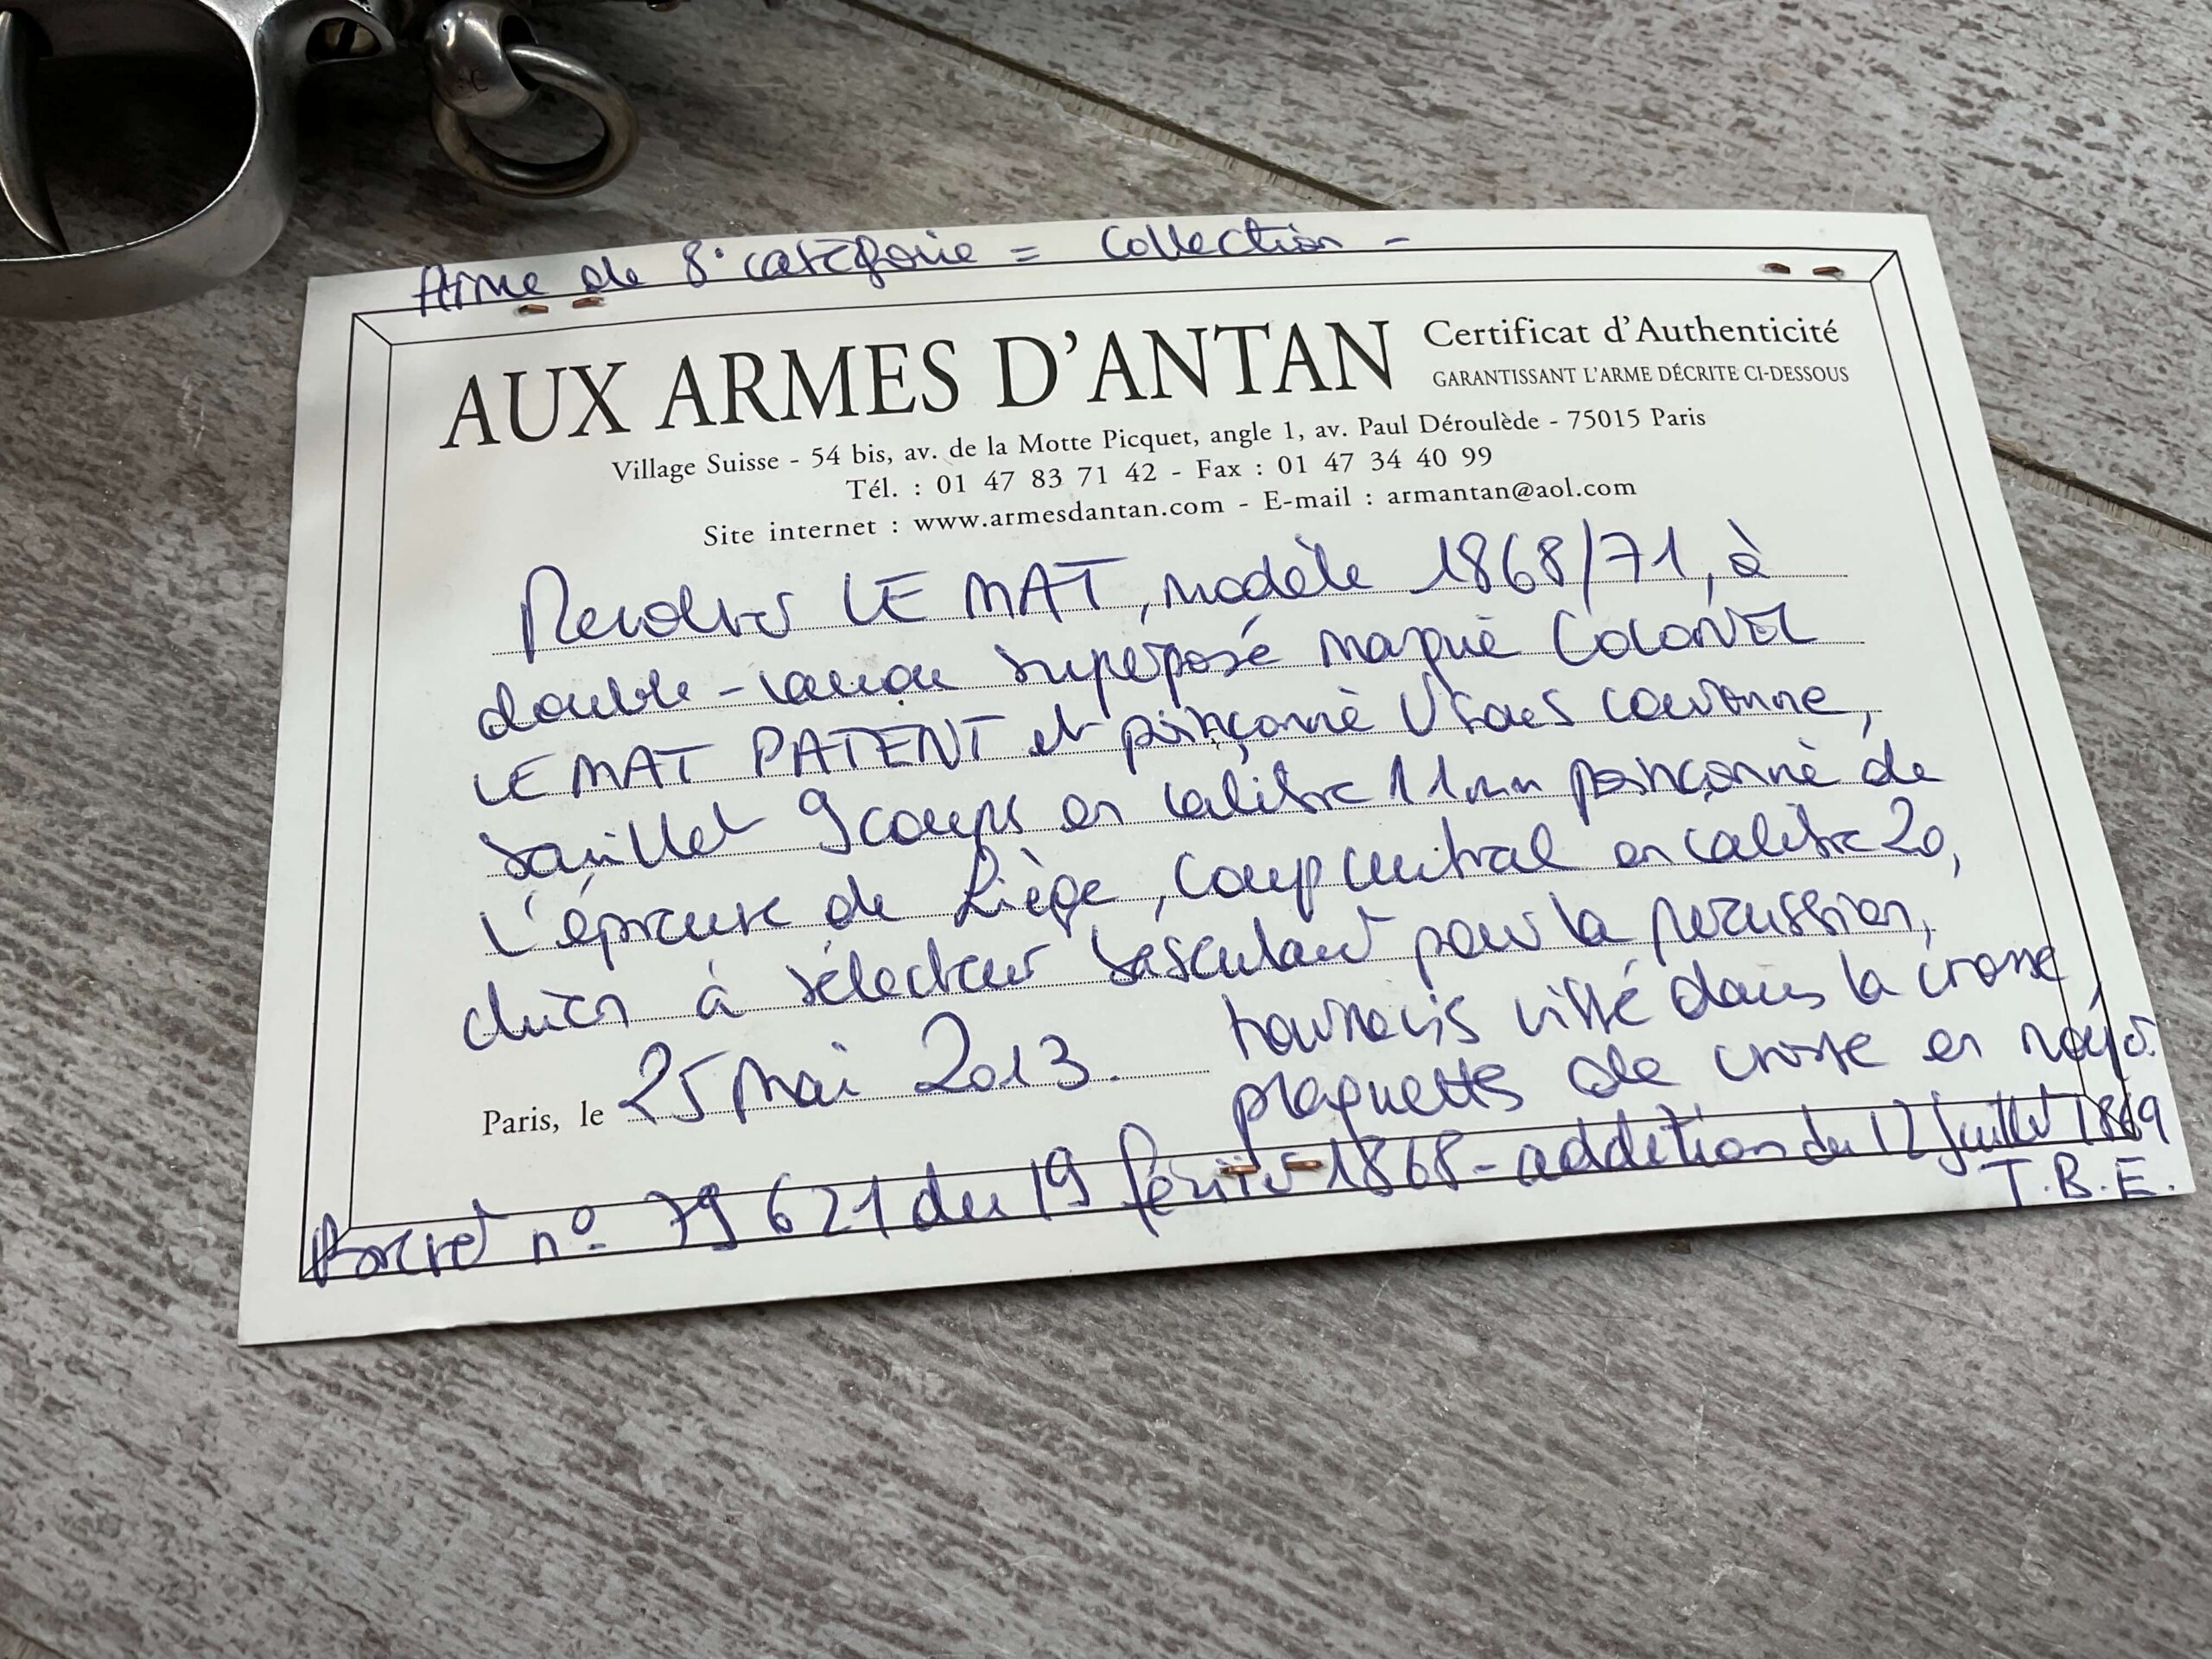 Arme de 8° catégorie = Collection -
AUX ARMES D'ANTAN
Certificat d'Authenticité
GARANTISSANT L'ARME DÉCRITE CI-DESSOUS
Village Suisse - 54 bis, av. de la Motte Picquet, angle 1, av. Paul Déroulède - 75015 Paris
Tél. : 01 47 83 71 42 - Fax : 01 47 34 40 99
Site internet : www.armesdantan.com - E-mail : armantan@aol.com
Revolver LE MAT, modèle 1868/71, à
double-canon superposé marqué COLONEL
LE MAT PATENT et poinçonné U sous couronne,
barillet 9 coups en calibre 11mm poinçonné de
l'épreuve de Liège, coup central en calibre 20,
chien à sélecteur basculant pour la percussion,
tournevis vissé dans la crosse,
plaquettes de crosse en noyer.
Paris, le 25 mai 2013.
Brevet n° 79621 du 19 février 1868 - addition du 12 juillet 1869
T.B.E.